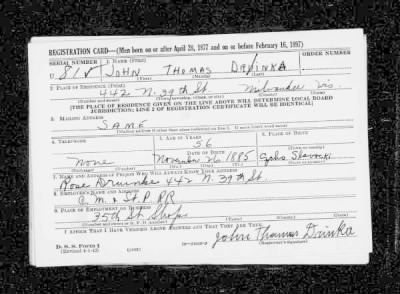 REGISTRATION CARD—(Men born on or after April 28, 1877 and on or before February 16, 1897)
SERIAL NUMBER 1. NAME (Print) ORDER NUMBER
U 815 JOHN THOMAS DRINKA
(First) (Middle) (Last)
2. PLACE OF RESIDENCE (Print)
442 N. 39th St. Milwaukee Wis.
(Number and street) (Town, township, village, or city) (County) (State)
[THE PLACE OF RESIDENCE GIVEN ON THE LINE ABOVE WILL DETERMINE LOCAL BOARD
JURISDICTION; LINE 2 OF REGISTRATION CERTIFICATE WILL BE IDENTICAL]
3. MAILING ADDRESS
SAME
[Mailing address if other than place indicated on line 2. If same insert word same]
4. TELEPHONE 5. AGE IN YEARS 6. PLACE OF BIRTH
56
DATE OF BIRTH
none November 26 1885
7. NAME AND ADDRESS OF PERSON WHO WILL ALWAYS KNOW YOUR ADDRESS
Rose Drinka 442 N. 39th St.
8. EMPLOYER'S NAME AND ADDRESS
C. M. & St. P. P. RR
9. PLACE OF EMPLOYMENT OR BUSINESS
35th St. Shops
(Number and street or R. F. D. number) (Town) (County) (State)
I AFFIRM THAT I HAVE VERIFIED ABOVE ANSWERS AND THAT THEY ARE TRUE.
D. S. S. Form 1
(Revised 4-1-42) (over) John Thomas Drinka